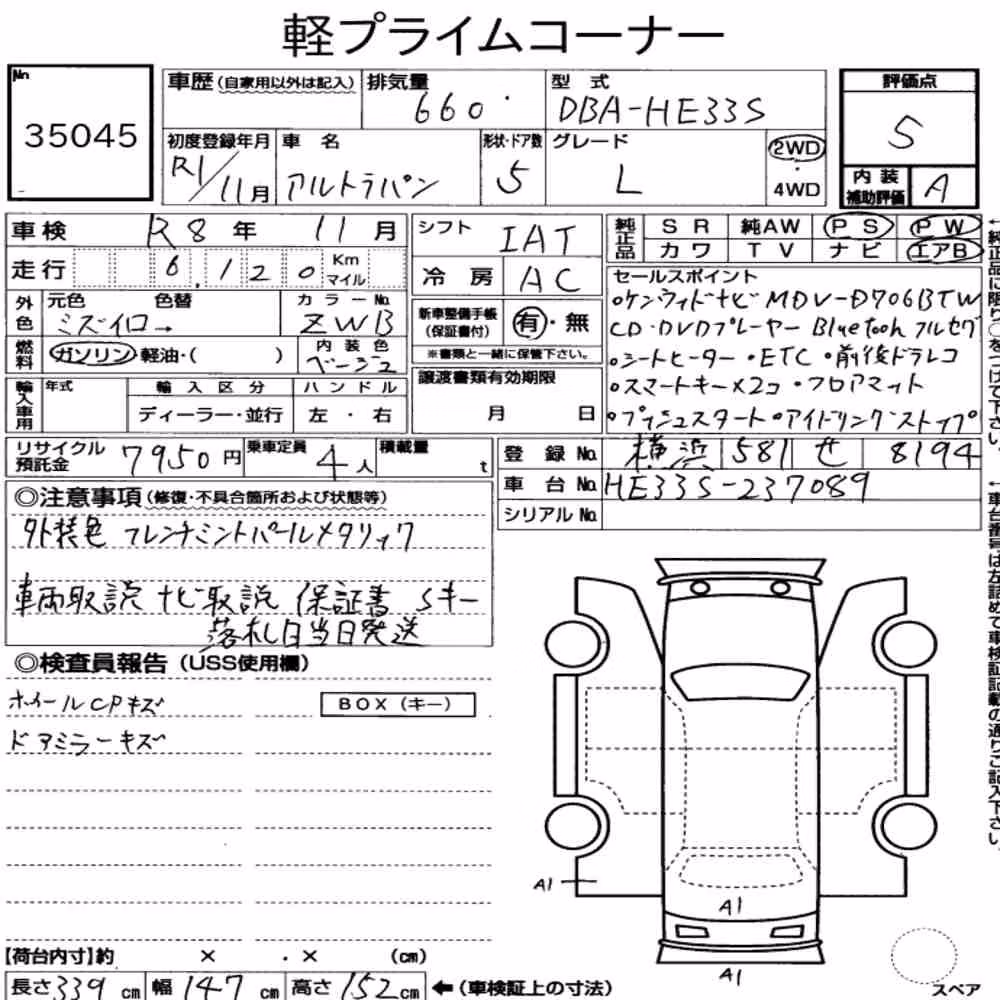 軽プライムコーナー
No. 35045
車歴 (自家用以外は記入) 排気量 660 型式 DBA-HE33S
初度登録年月 R1/11月 車名 アルトラパン 形状・ドア数 5 グレード L 2WD 4WD
評価点 5
内装補助評価 A
車検 R8年 11月
走行 6,120 Km マイル
外色 元色 色替 ミズイロ→ カラーNo. ZWB
燃料 ガソリン・軽油・( ) 内装色 ベージュ
輸入車用 年式 輸入区分 ディーラー・並行 ハンドル 左・右
シフト IAT
冷房 AC
新車整備手帳 (保証書付) 有・無
※書類と一緒に保管下さい。
譲渡書類有効期限
月 日
純正品 SR 純AW PS PW
カワ TV ナビ エアB
セールスポイント
○ケンウッドナビ MDV-D706BTW
CD・DVDプレーヤー Bluetooh フルセグ
○シートヒーター・ETC・前後ドラレコ
○スマートキー×2コ・フロアマット
○プッシュスタート○アイドリングストップ
←純正品に限り○をつけて下さい。
リサイクル預託金 7950円 乗車定員 4人 積載量 t
登録No. 横浜 581 せ 8194
車台No. HE33S-237089
シリアルNo.
←車台番号は左詰めで車検証記載の通りご記入下さい。
◎注意事項 (修復・不具合箇所および状態等)
外装色 フレンチミントパールメタリック
車両取説 ナビ取説 保証書 Sキー
落札日当日発送
◎検査員報告 (USS使用欄)
ホイールCPキズ BOX (キー)
ドアミラーキズ
A1
A1
A1
スペア
【荷台内寸】約 × . × (cm)
長さ 339 cm 幅 147 cm 高さ 152 cm ←(車検証上の寸法)